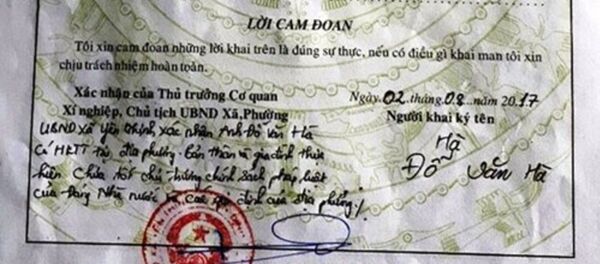 LỜI CAM ĐOAN
Tôi xin cam đoan những lời khai trên là đúng sự thực, nếu có điều gì khai man tôi xin
chịu trách nhiệm hoàn toàn.
Xác nhận của Thủ trưởng Cơ quan
Xí nghiệp, Chủ tịch UBND Xã,Phường
Ngày 02 tháng 08 năm 2017
Người khai ký tên
UBND xã Yên Chính xác nhận Anh Đỗ Văn Hà
Có HKTT tại địa phương. Bản thân và gia đình thực
hiện chưa tốt chủ trương chính sách pháp luật
của Đảng Nhà nước và các quy định của địa phương./
Hà
Đỗ Văn Hà